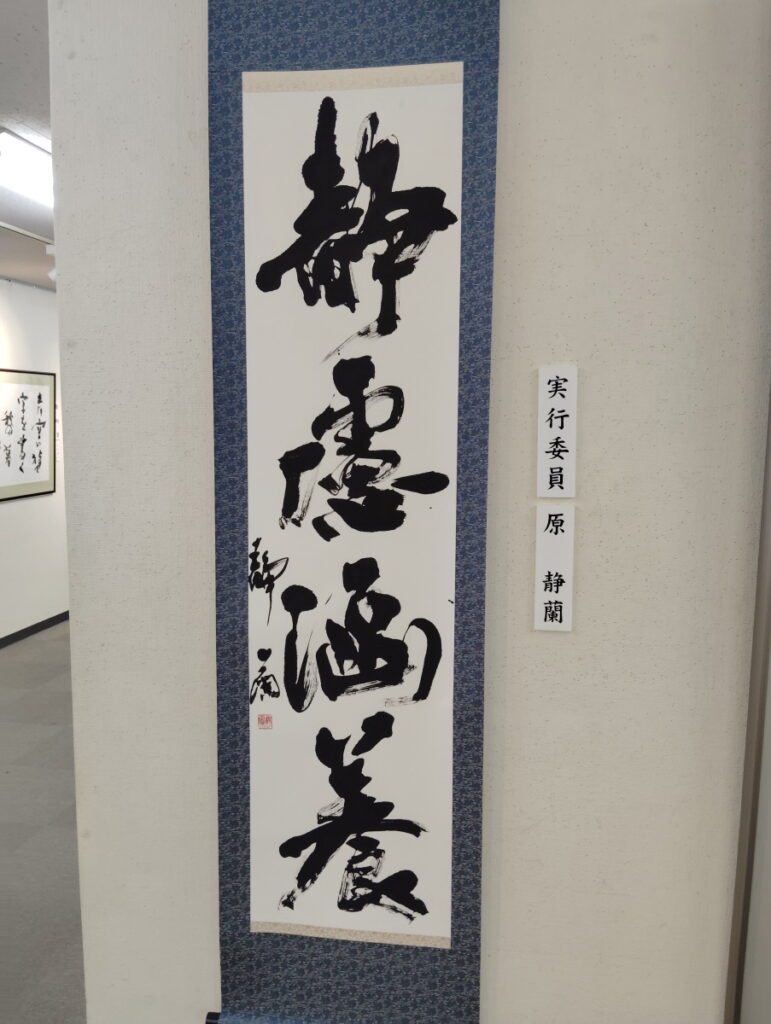 静慮涵養
静蘭
実行委員
原 静蘭